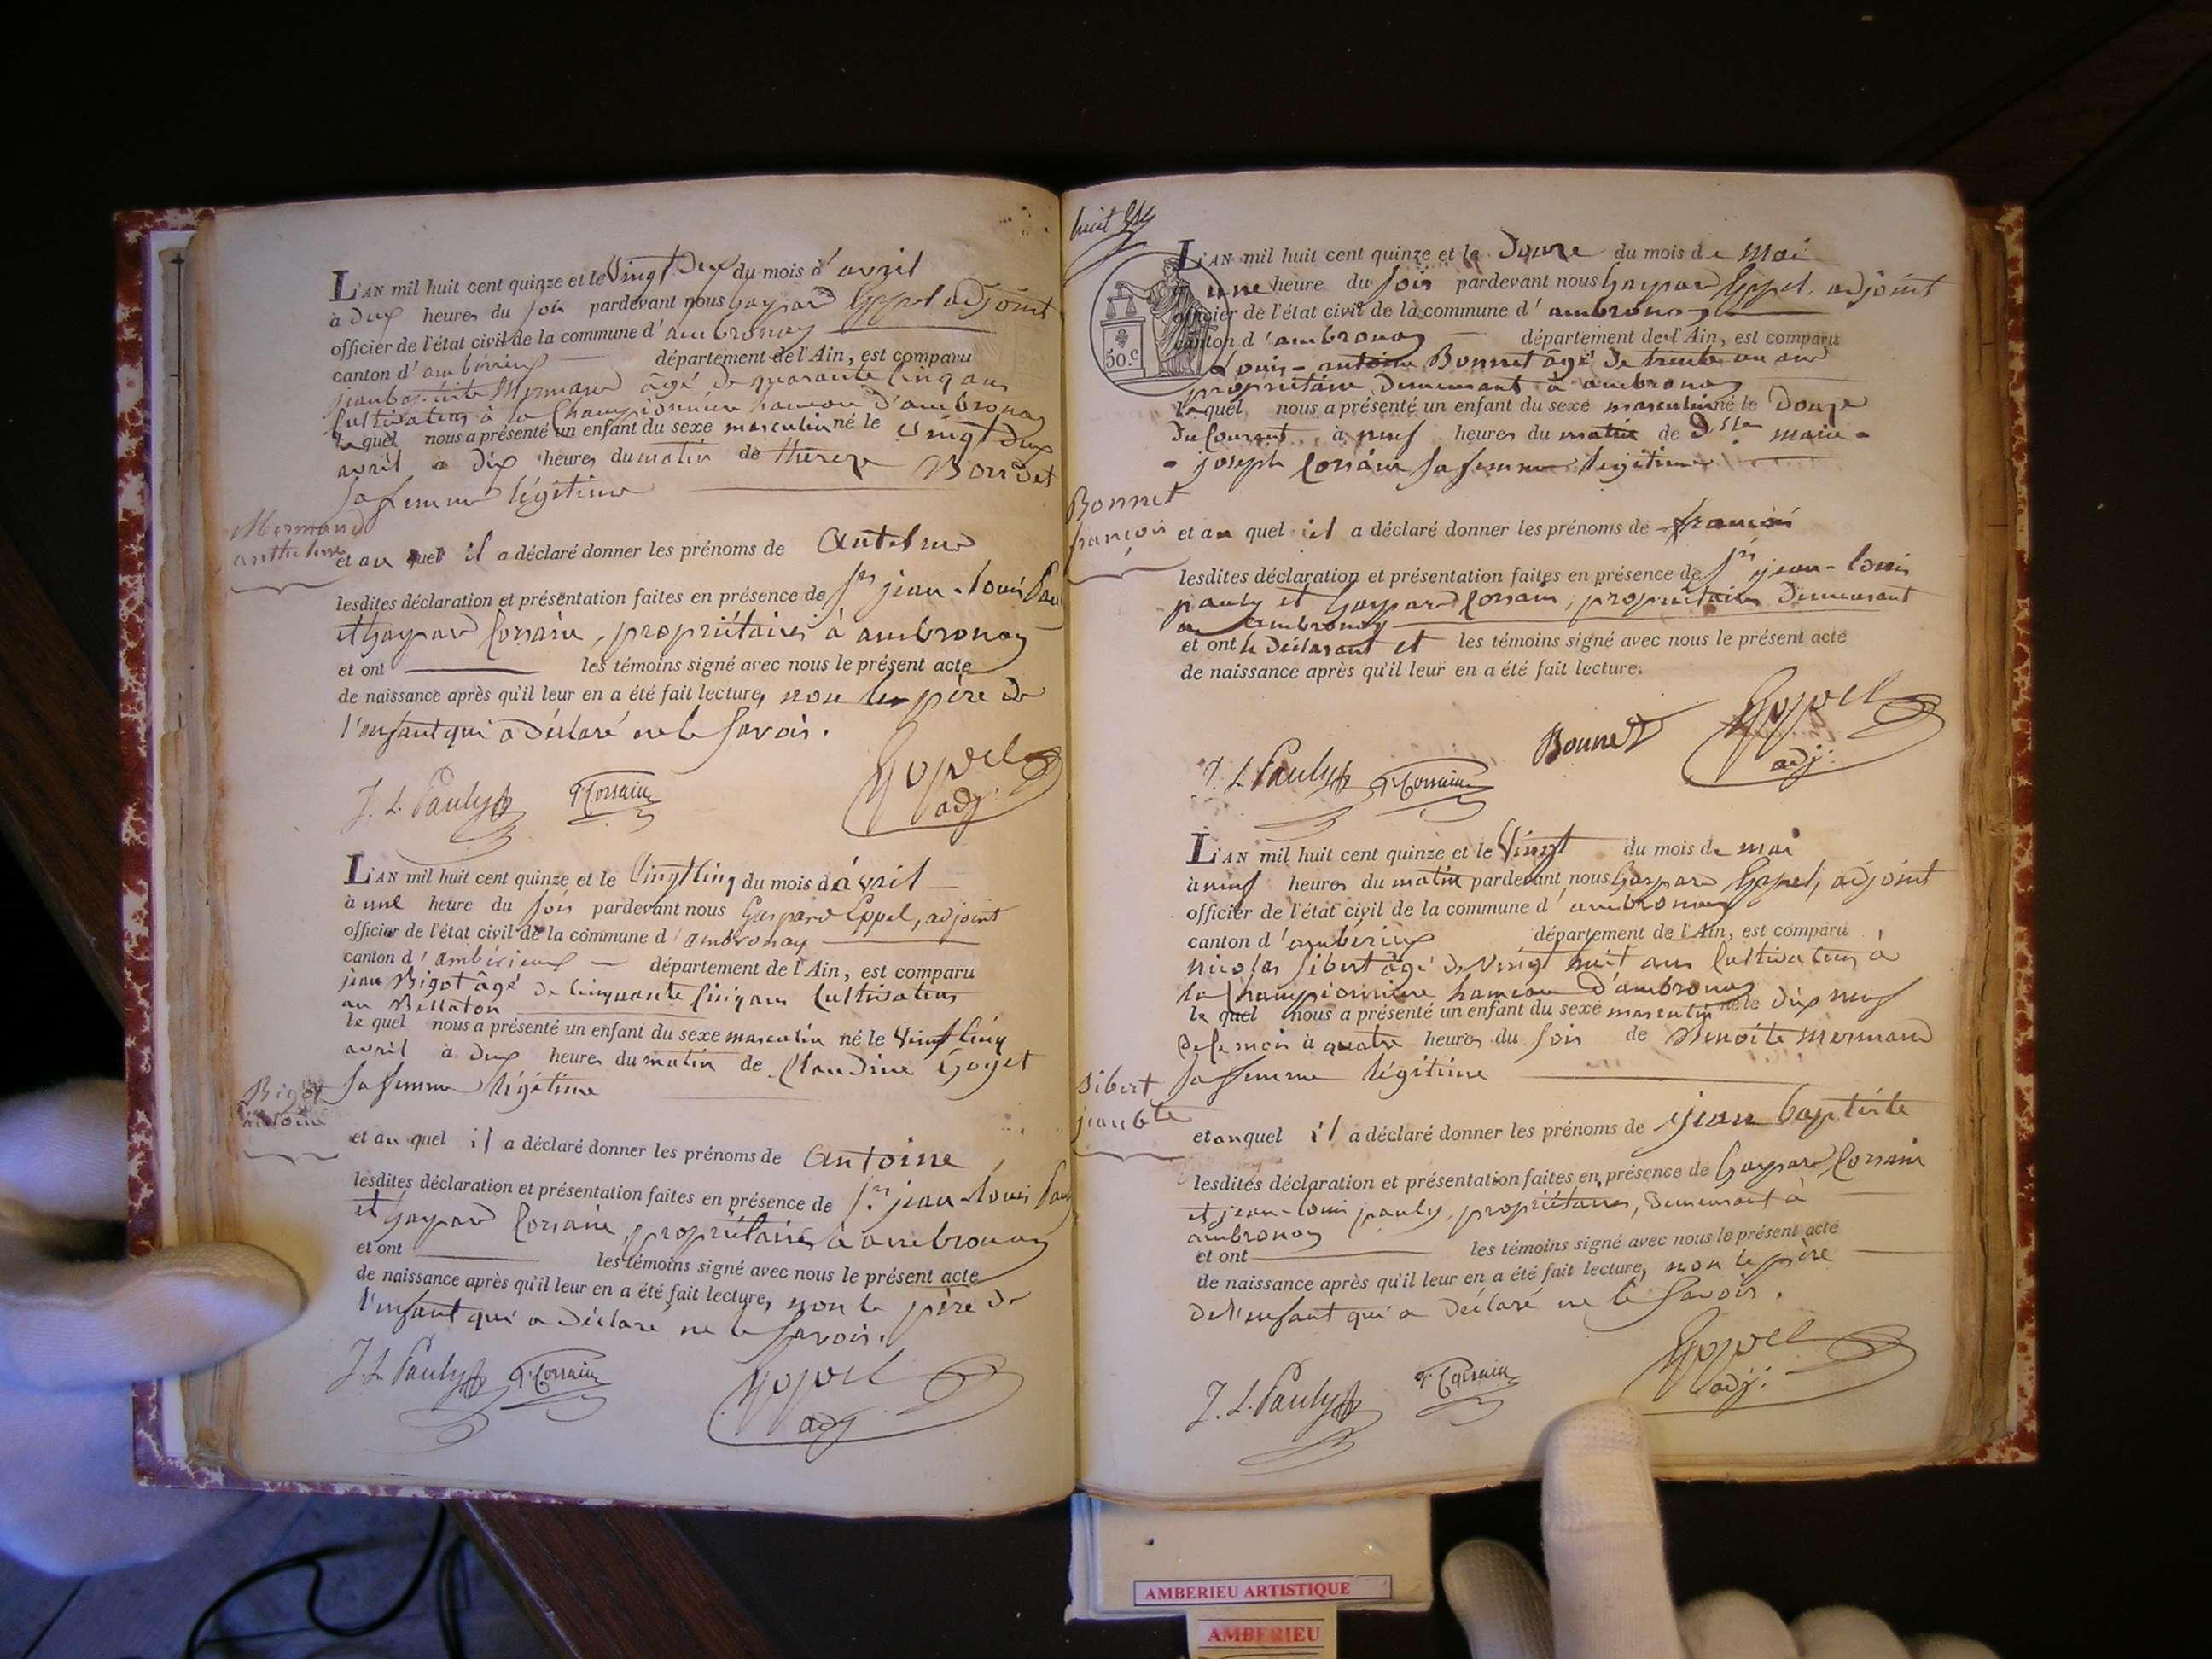 L'AN mil huit cent quinze et le Vingt Deux du mois d'avril
à deux heures du soir pardevant nous Gaspard Eppel adjoint
officier de l'état civil de la commune d'ambronay
canton d'ambérieux département de l'Ain, est comparu
jean baptiste Mermand âgé de quarante cinq ans
Cultivateur à la Championnière hameau d'ambronay
le quel nous a présenté un enfant du sexe masculin né le vingt deux
avril à dix heures du matin de therese Borrdet
sa femme légitime
Mermand
anthelme
et au quel il a déclaré donner les prénoms de Antelme
lesdites déclaration et présentation faites en présence de Sr. jean-louis Pau
et Gaspard Corsain, propriétaires à ambronay
et ont les témoins signé avec nous le présent acte
de naissance après qu'il leur en a été fait lecture, non le père de
l'enfant qui a déclaré ne le savoir.
J. L. Pauly G. Corsain Eppel
adj.
L'AN mil huit cent quinze et le Vingt Cinq du mois d'avril
à une heure du soir pardevant nous Gaspard Eppel, adjoint
officier de l'état civil de la commune d'ambronay
canton d'ambérieux département de l'Ain, est comparu
jean Bigot âgé de cinquante cinq ans Cultivateur
au Bellaton
le quel nous a présenté un enfant du sexe masculin né le vingt cinq
avril à deux heures du matin de Claudine Goyet
sa femme légitime
Bigot
antoine
et au quel il a déclaré donner les prénoms de Antoine
lesdites déclaration et présentation faites en présence de Sr. jean-louis Pau
et Gaspard Corsain, propriétaires à ambronay
et ont les témoins signé avec nous le présent acte
de naissance après qu'il leur en a été fait lecture, non le père de
l'enfant qui a déclaré ne le savoir.
J. L. Pauly G. Corsain Eppel
adj
huit
50.c
L'AN mil huit cent quinze et le Douze du mois de Mai
à une heure du soir pardevant nous Gaspard Eppel, adjoint
officier de l'état civil de la commune d'ambronay
canton d'ambronay département de l'Ain, est comparu
Louis-antoine Bonnet âgé de trente un ans
propriétaire demeurant à ambronay
le quel nous a présenté un enfant du sexe masculin né le Douze
du Courant à neuf heures du matin de Dlle marie-
-joseph Corsain sa femme légitime
Bonnet
françois
et au quel il a déclaré donner les prénoms de françois
lesdites déclaration et présentation faites en présence de Srs jean-louis
pauly et Gaspard Corsain, propriétaires demeurant
à ambronay
et ont le déclarant et les témoins signé avec nous le présent acte
de naissance après qu'il leur en a été fait lecture.
J. L. Pauly G. Corsain Bonnet Eppel
adj.
L'AN mil huit cent quinze et le Vingt du mois de mai
à neuf heures du matin pardevant nous Gaspard Eppel, adjoint
officier de l'état civil de la commune d'ambronay
canton d'ambérieux département de l'Ain, est comparu
nicolas Sibert âgé de Vingt huit ans Cultivateur à
la Championnière hameau d'ambronay
le quel nous a présenté un enfant du sexe masculin né le dix neuf
de ce mois à quatre heures du soir de Benoite mermand
sa femme légitime
Sibert
jean bte
et au quel il a déclaré donner les prénoms de jean baptiste
lesdites déclaration et présentation faites en présence de Gaspard Corsain
et jean-louis pauly, propriétaires, demeurant à
ambronay
et ont les témoins signé avec nous le présent acte
de naissance après qu'il leur en a été fait lecture, non le père
de l'enfant qui a déclaré ne le savoir.
J. L. Pauly G. Corsain Eppel
adj.
AMBERIEU ARTISTIQUE
AMBERIEU